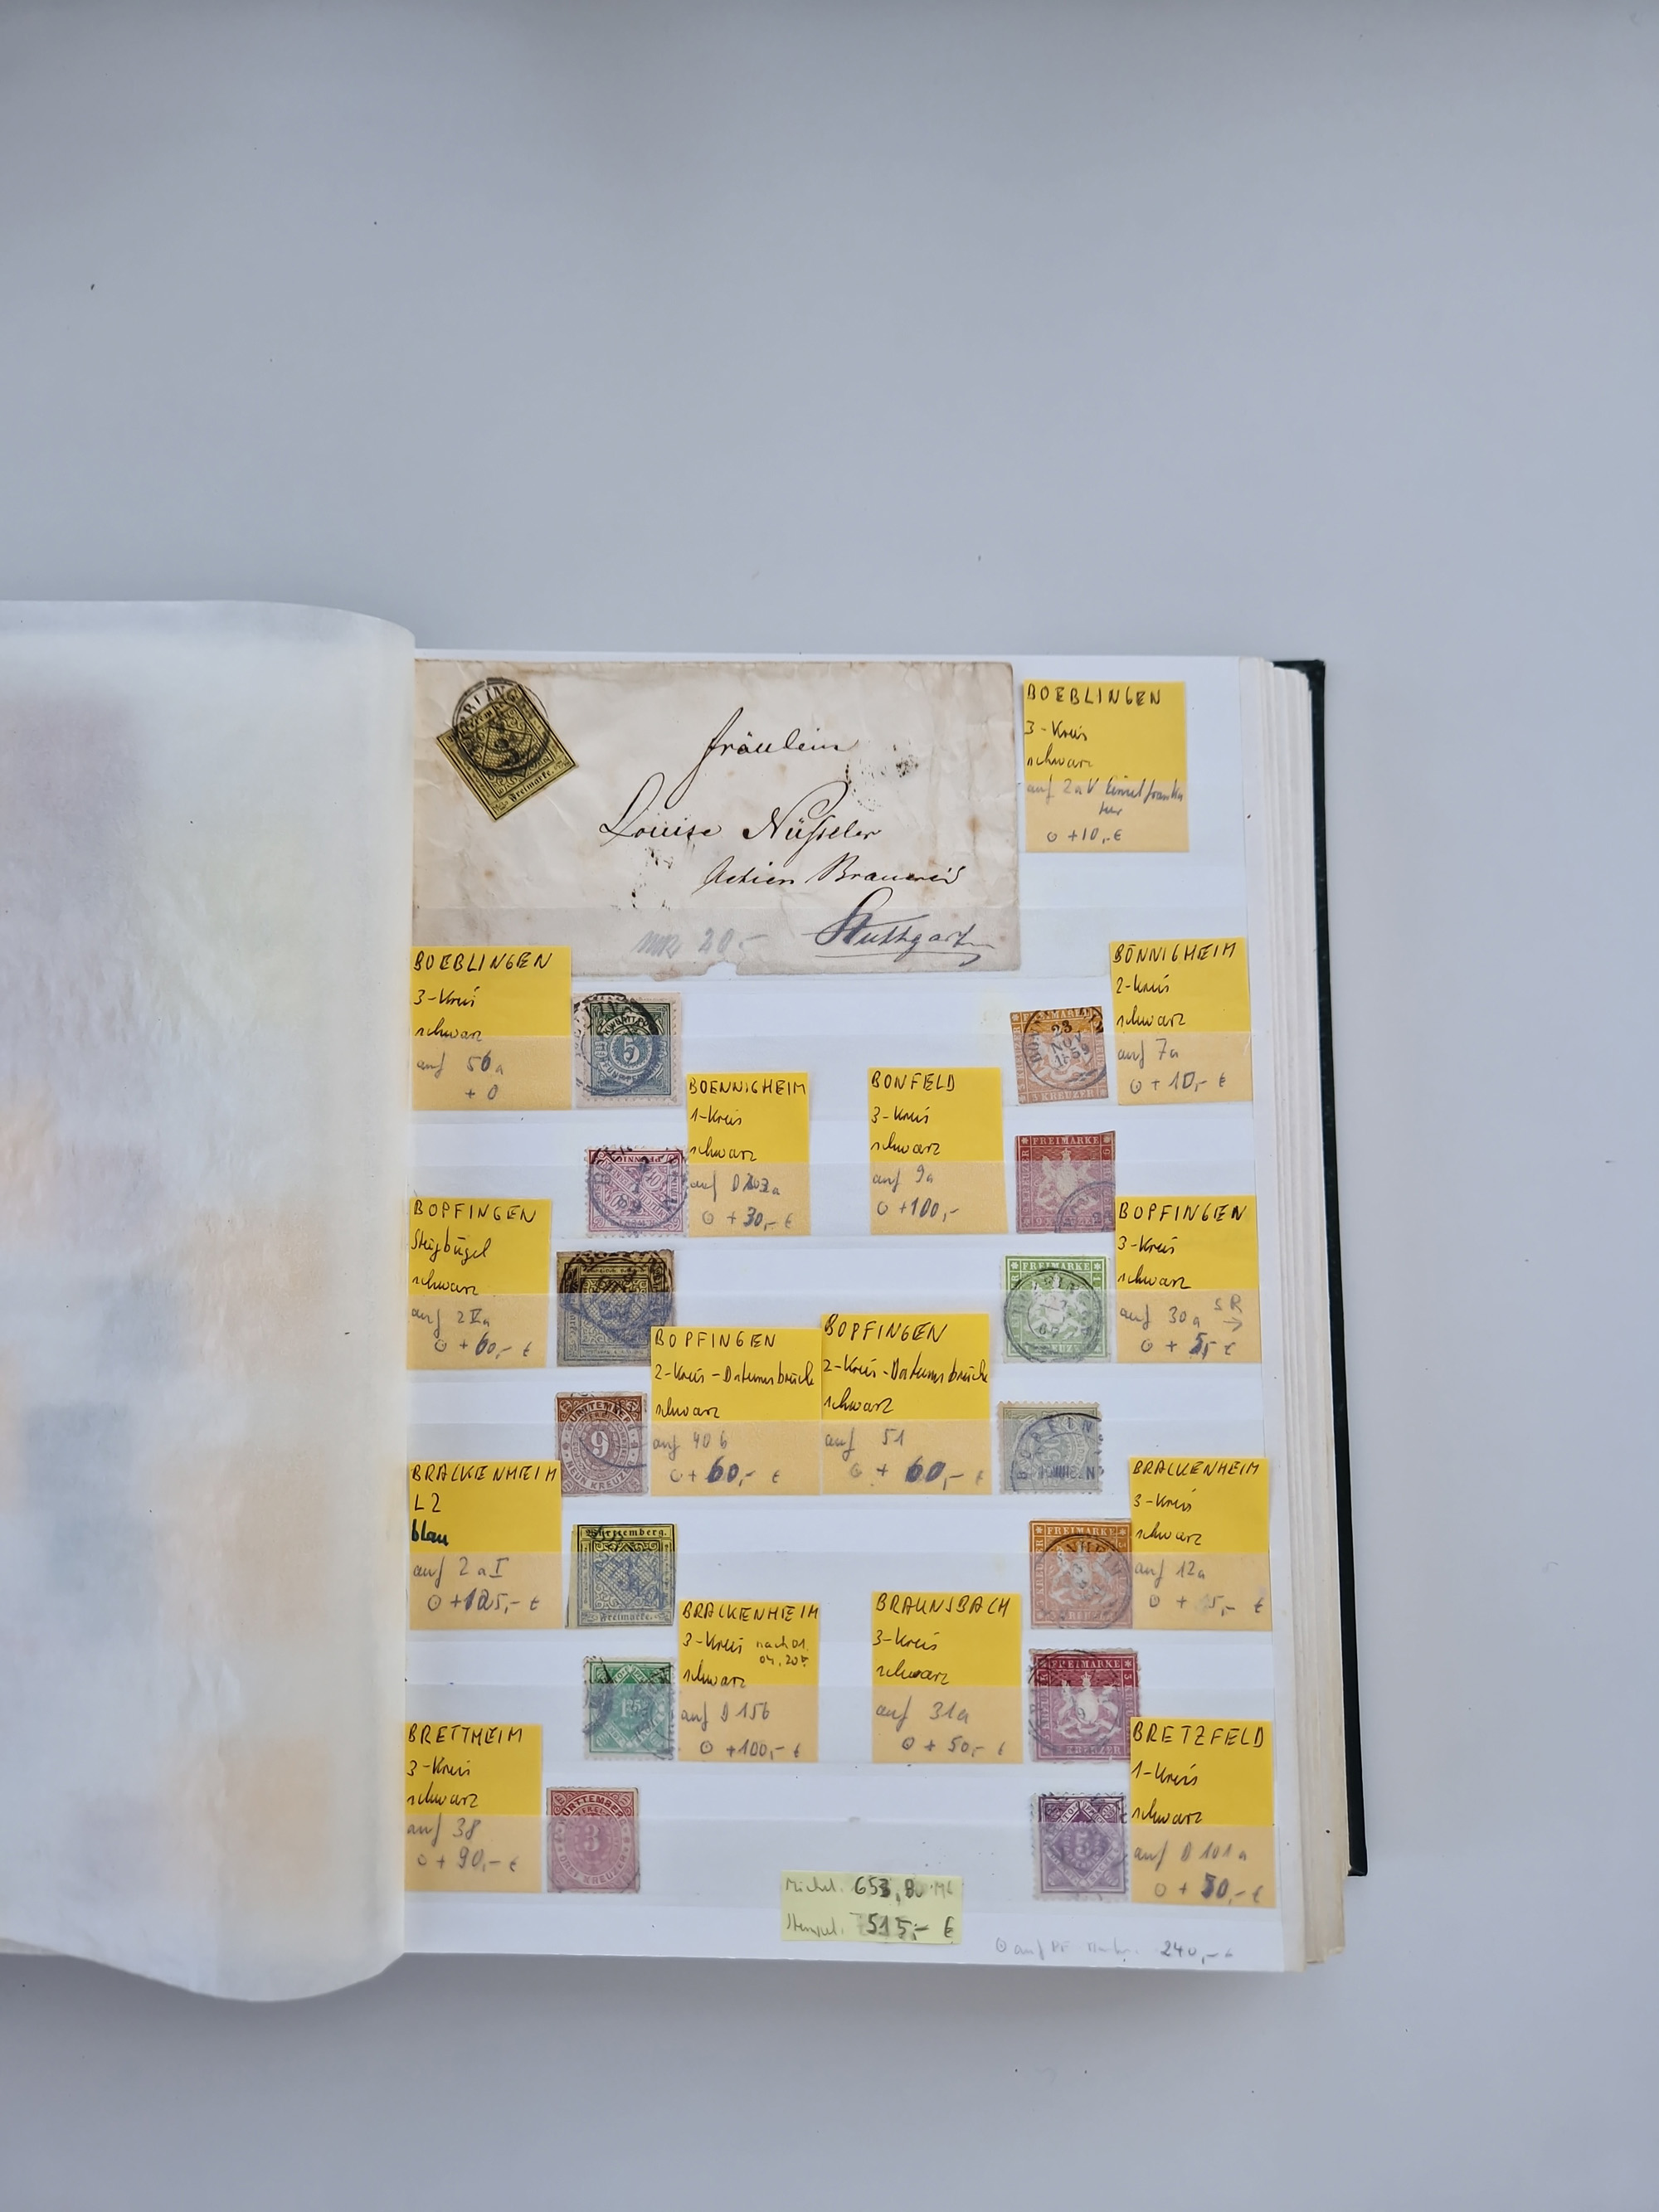 BOEBLINGEN
3-Kreis
schwarz
auf 2aV Einzelfrankatur
⊙ +10,-€
Freimarke.
Fräulein
Louise Nüsseler
Actien Brauerei
Stuttgart
20,-
BOEBLINGEN
3-Kreis
schwarz
auf 56a
+ 0
5
BÖNNIGHEIM
2-Kreis
schwarz
auf 7a
⊙ + 10,- €
23
NOV
1859
3 KREUZER
BOENNIGHEIM
1-Kreis
schwarz
auf D
⊙ + 30,- €
BONFELD
3-Kreis
schwarz
auf 9a
⊙ +100,-
FREIMARKE
BOPFINGEN
Steigbügel
schwarz
auf 2
⊙ + 60,- €
BOPFINGEN
3-Kreis
schwarz
auf 30a SR →
⊙ + 5,- €
FREIMARKE
BOPFINGEN
2-Kreis-Datumsbrücke
schwarz
auf 40b
⊙ + 60,- €
WÜRTTEMBERG
9
NEUN KREUZER
BOPFINGEN
2-Kreis-Datumsbrücke
schwarz
auf 51
⊙ + 60,- €
BRACKENHEIM
L2
blau
auf 2aI
⊙ +125,- €
Württemberg.
Freimarke.
BRACKENHEIM
3-Kreis
schwarz
auf 12a
⊙ + 5,- €
FREIMARKE
BRACKENHEIM
3-Kreis nach 01.
04.
schwarz
auf D 156
⊙ +100,- €
BRAUNSBACH
3-Kreis
schwarz
auf 31a
⊙ + 50,- €
FREIMARKE
KREUZER
BRETTHEIM
3-Kreis
schwarz
auf 38
⊙ + 90,- €
WÜRTTEMBERG
3
DREI KREUZER
BRETZFELD
1-Kreis
schwarz
auf D 101a
⊙ + 30,- €
5
Michel: 653,80 M€
Stempel: 515,- €
⊙ auf 240,- €